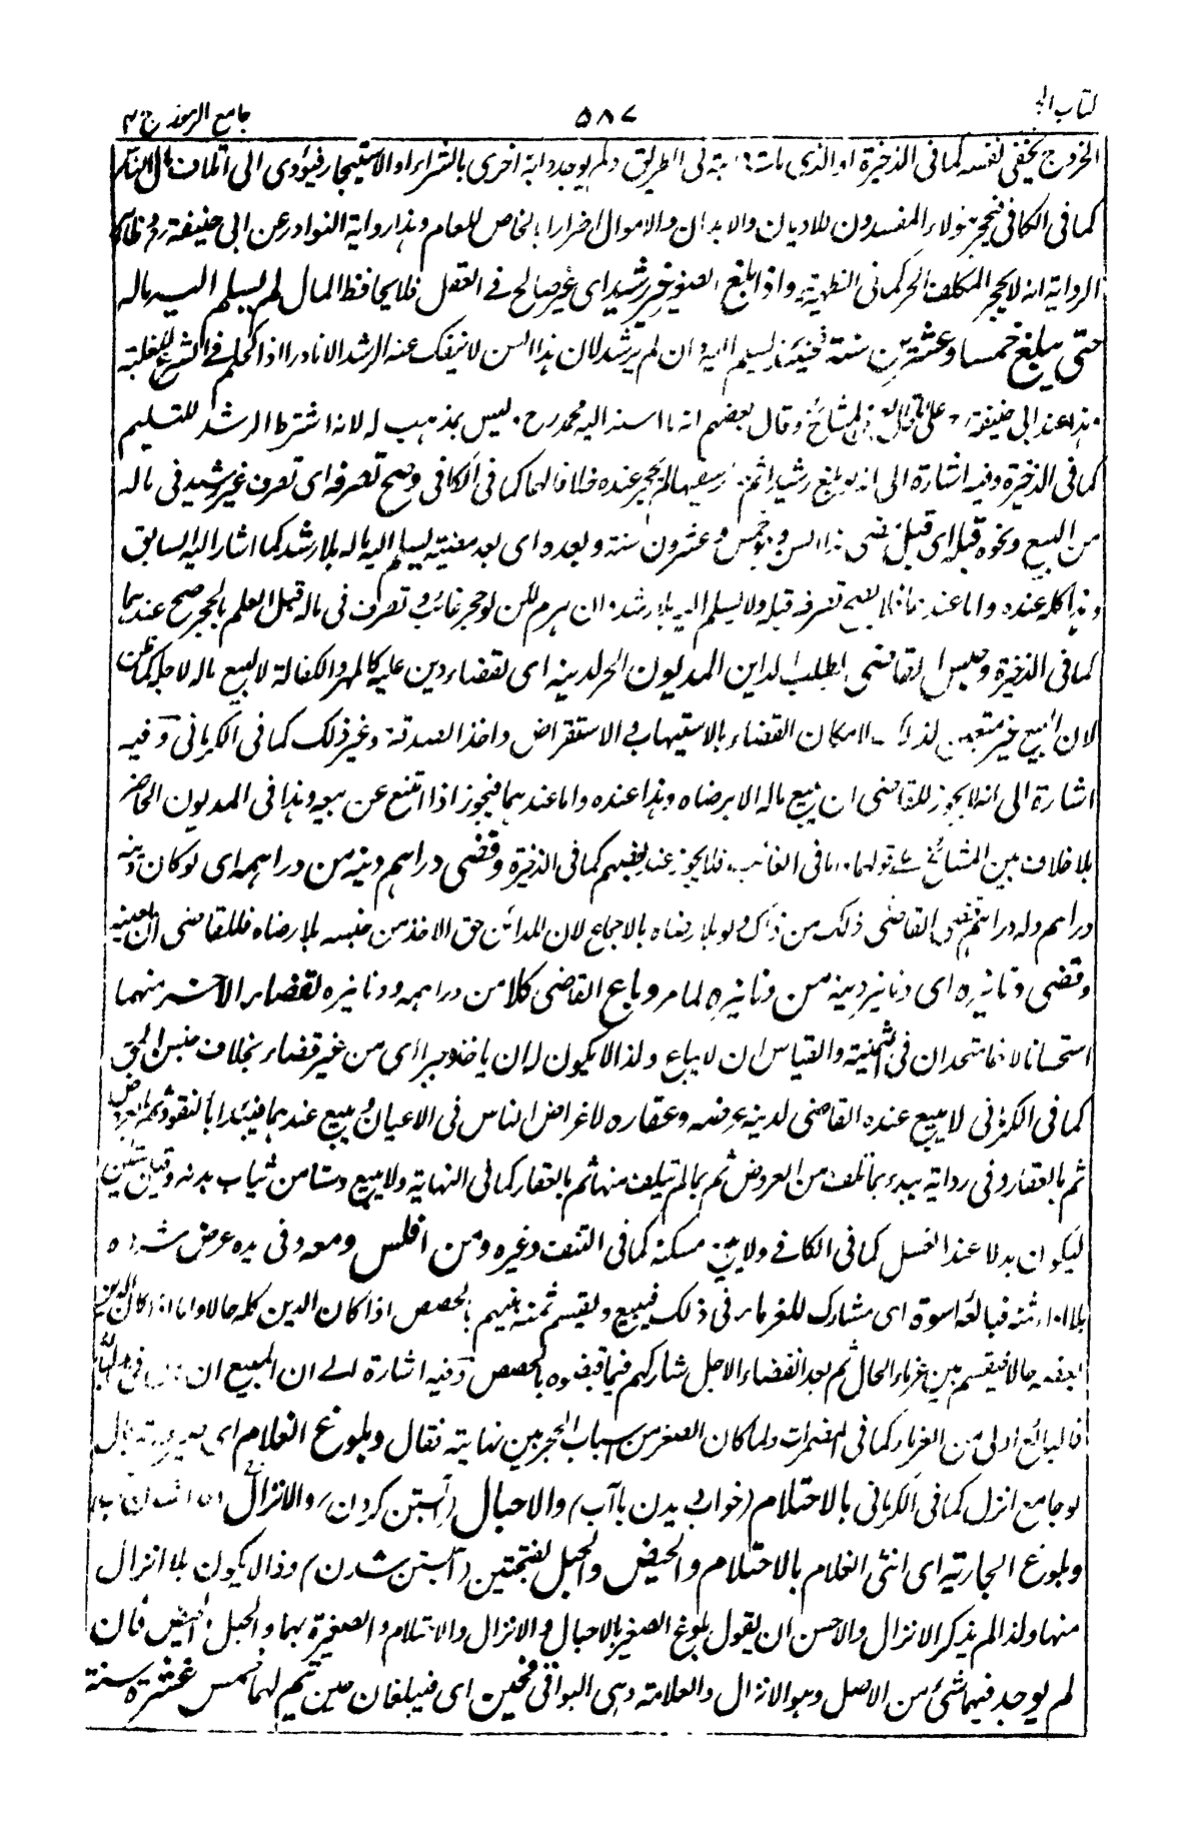 كتاب ٥٨٧ جامع الرموز ج ٣
الخروج يخفي نفسه كما في الذخيرة او الذي في الطريق ولم يوجد دابة اخرى بالشراء او الاستيجار فيؤدى الى اتلاف
كما في الكافي فيحجر هؤلاء المفسدون للاديان والابدان والاموال اضرارا بالخاص للعام وهذا رواية النوادر عن ابى حنيفة رح
الرواية انه لا يحجر المكلف الحر كما في الظهيرية واذا بلغ الصغير غير رشيد اى غير صالح فى العقل فلا يحافظ المال لم يسلم اليه ماله
حتى يبلغ خمسا وعشرين سنة فحينئذ يسلم اليه وان لم يرشد لان هذا السن لا ينفك عنه الرشد الا نادرا اذا لحكم فى الشرع للغلبة
هذا عند ابى حنيفة المشائخ وقال بعضهم ان ما اسند اليه محمد رح ليس بمذهب له لانه اشترط الرشد للتسليم
كما فى الذخيرة وفيه اشارة الى انه لو بلغ رشيدا ثم سفيها لم يحجر عنده خلافا لهما كما فى الكافى وصح تصرفه اى تصرف غير رشيد فى ماله
من البيع ونحوه قبله اى قبل مضى هذا السن وهو خمس وعشرون سنة وبعده اى بعد مضيه يسلم اليه ماله بلا رشد كما اشار اليه السابق
وهذا كله عنده واما عندهما فلا يصح تصرفه قبله ولا يسلم اليه بلا رشد ان هرم لكن لو حجر غائب وتصرف فى ماله قبل العلم بالحجر صح عندهما
كما فى الذخيرة وحبس القاضى بطلب الداين المديون الحر لدينه اى لقضاء دين عليه كالمهر والكفالة لا لبيع ماله لاجله كما ظن
لان البيع غير متعين لذلك لامكان القضاء بالاستيهاب والاستقراض واخذ الصدقة وغير ذلك كما فى الكرمانى وفيه
اشارة الى انه لا يجوز للقاضى ان يبيع ماله الا برضاه وهذا عنده واما عندهما فيجوز اذا امتنع عن بيعه وهذا فى المديون الحاضر
بلا خلاف بين المشائخ على قولهما واما فى الغائب فلا يجوز عند بعضهم كما فى الذخيرة وقضى دراهم دينه من دراهمه اى لو كان دينه
دراهم وله دراهم قضى القاضى ذلك من ذاك ولو بلا رضاه بالاجماع لان للدائن حق الاخذ من جنسه بلا رضاه فللقاضى ان يعينه
وقضى دنانيره اى دنانير دينه من دنانيره لما مر وباع القاضى كلا من دراهمه ودنانيره لقضاء الآخر منهما
استحسانا لانهما متحدان فى الثمنية والقياس ان لا يباع ولذا لا يكون له ان ياخذ جبرا اى من غير قضاء بخلاف جنس الحق
كما فى الكرمانى لا يبيع عنده القاضى لدينه عرضه وعقاره لاغراض الناس فى الاعيان ويبيع عندهما فيبتدأ بالنقود ثم العروض
ثم بالعقار وفى رواية يبدء بما تلف من العروض ثم بما لم يتلف منها ثم بالعقار كما فى النهاية ولا يبيع دستا من ثياب بدنه وقيل دستين
ليكون بدلا عند الغسل كما فى الكافى ولا يبيع مسكنه كما فى النتف وغيره ومن افلس ومعه وفى يده عرض شراه
بلا اداء ثمنه فبائعه اسوة اى مشارك للغرماء فى ذلك فيبيع ويقسم ثمنه بينهم بالحصص اذا كان الدين كله حالا واما اذا كان الدين
بعضه حالا فيقسم بين غرماء الحال ثم بعد انقضاء الاجل شاركهم فيما قبضوه بالحصص وفيه اشارة الى ان المبيع ان
فالبائع اولى من الغرماء كما فى المضمرات ولما كان الصغر من اسباب الحجر بين نهايته فقال وبلوغ الغلام اى
لو جامع انزل كما فى الكرمانى بالاحتلام (خواب ديدن باآب) والاحبال (آبستن كردن) والانزال
وبلوغ الجارية اى انثى الغلام بالاحتلام والحيض والحبل بفتحتين (آبستن شدن) وذا لا يكون بلا انزال
منها ولذا لم يذكر الانزال والاحسن ان يقول بلوغ الصغير بالاحبال والانزال والاحتلام والصغيرة بهما والحبل والحيض فان
لم يوجد فيهما شئ من الاصل وهو الانزال والعلامة وهى البواقى فحين اى فيبلغان حين يتم لهما خمس عشرة سنة